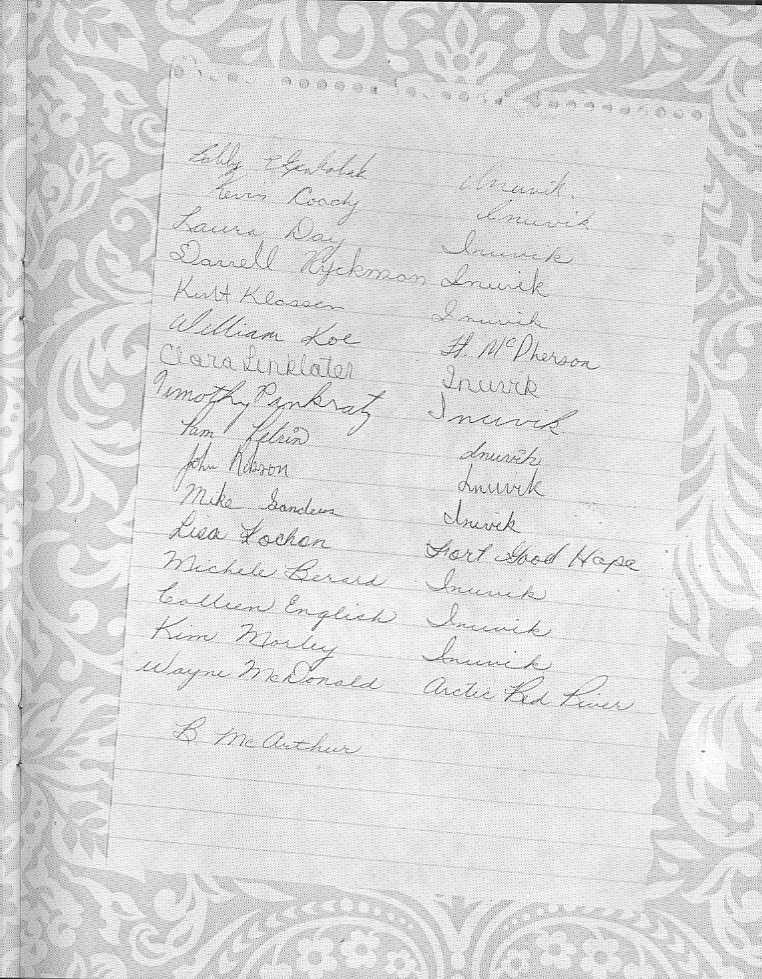 Inuvik.
Kevin Coady Inuvik
Laura Day Inuvik
Darrell Ryckman Inuvik
Kurt Klassen Inuvik
William Koe Ft. McPherson
Clara Linklater Inuvik
Timothy Pankratz Inuvik
Pam Inuvik
John Inuvik
Mike Sanders Inuvik
Lisa Kochon Fort Good Hope
Michele Berard Inuvik
Colleen English Inuvik
Kim Morley Inuvik
Wayne McDonald Arctic Red River
B McArthur